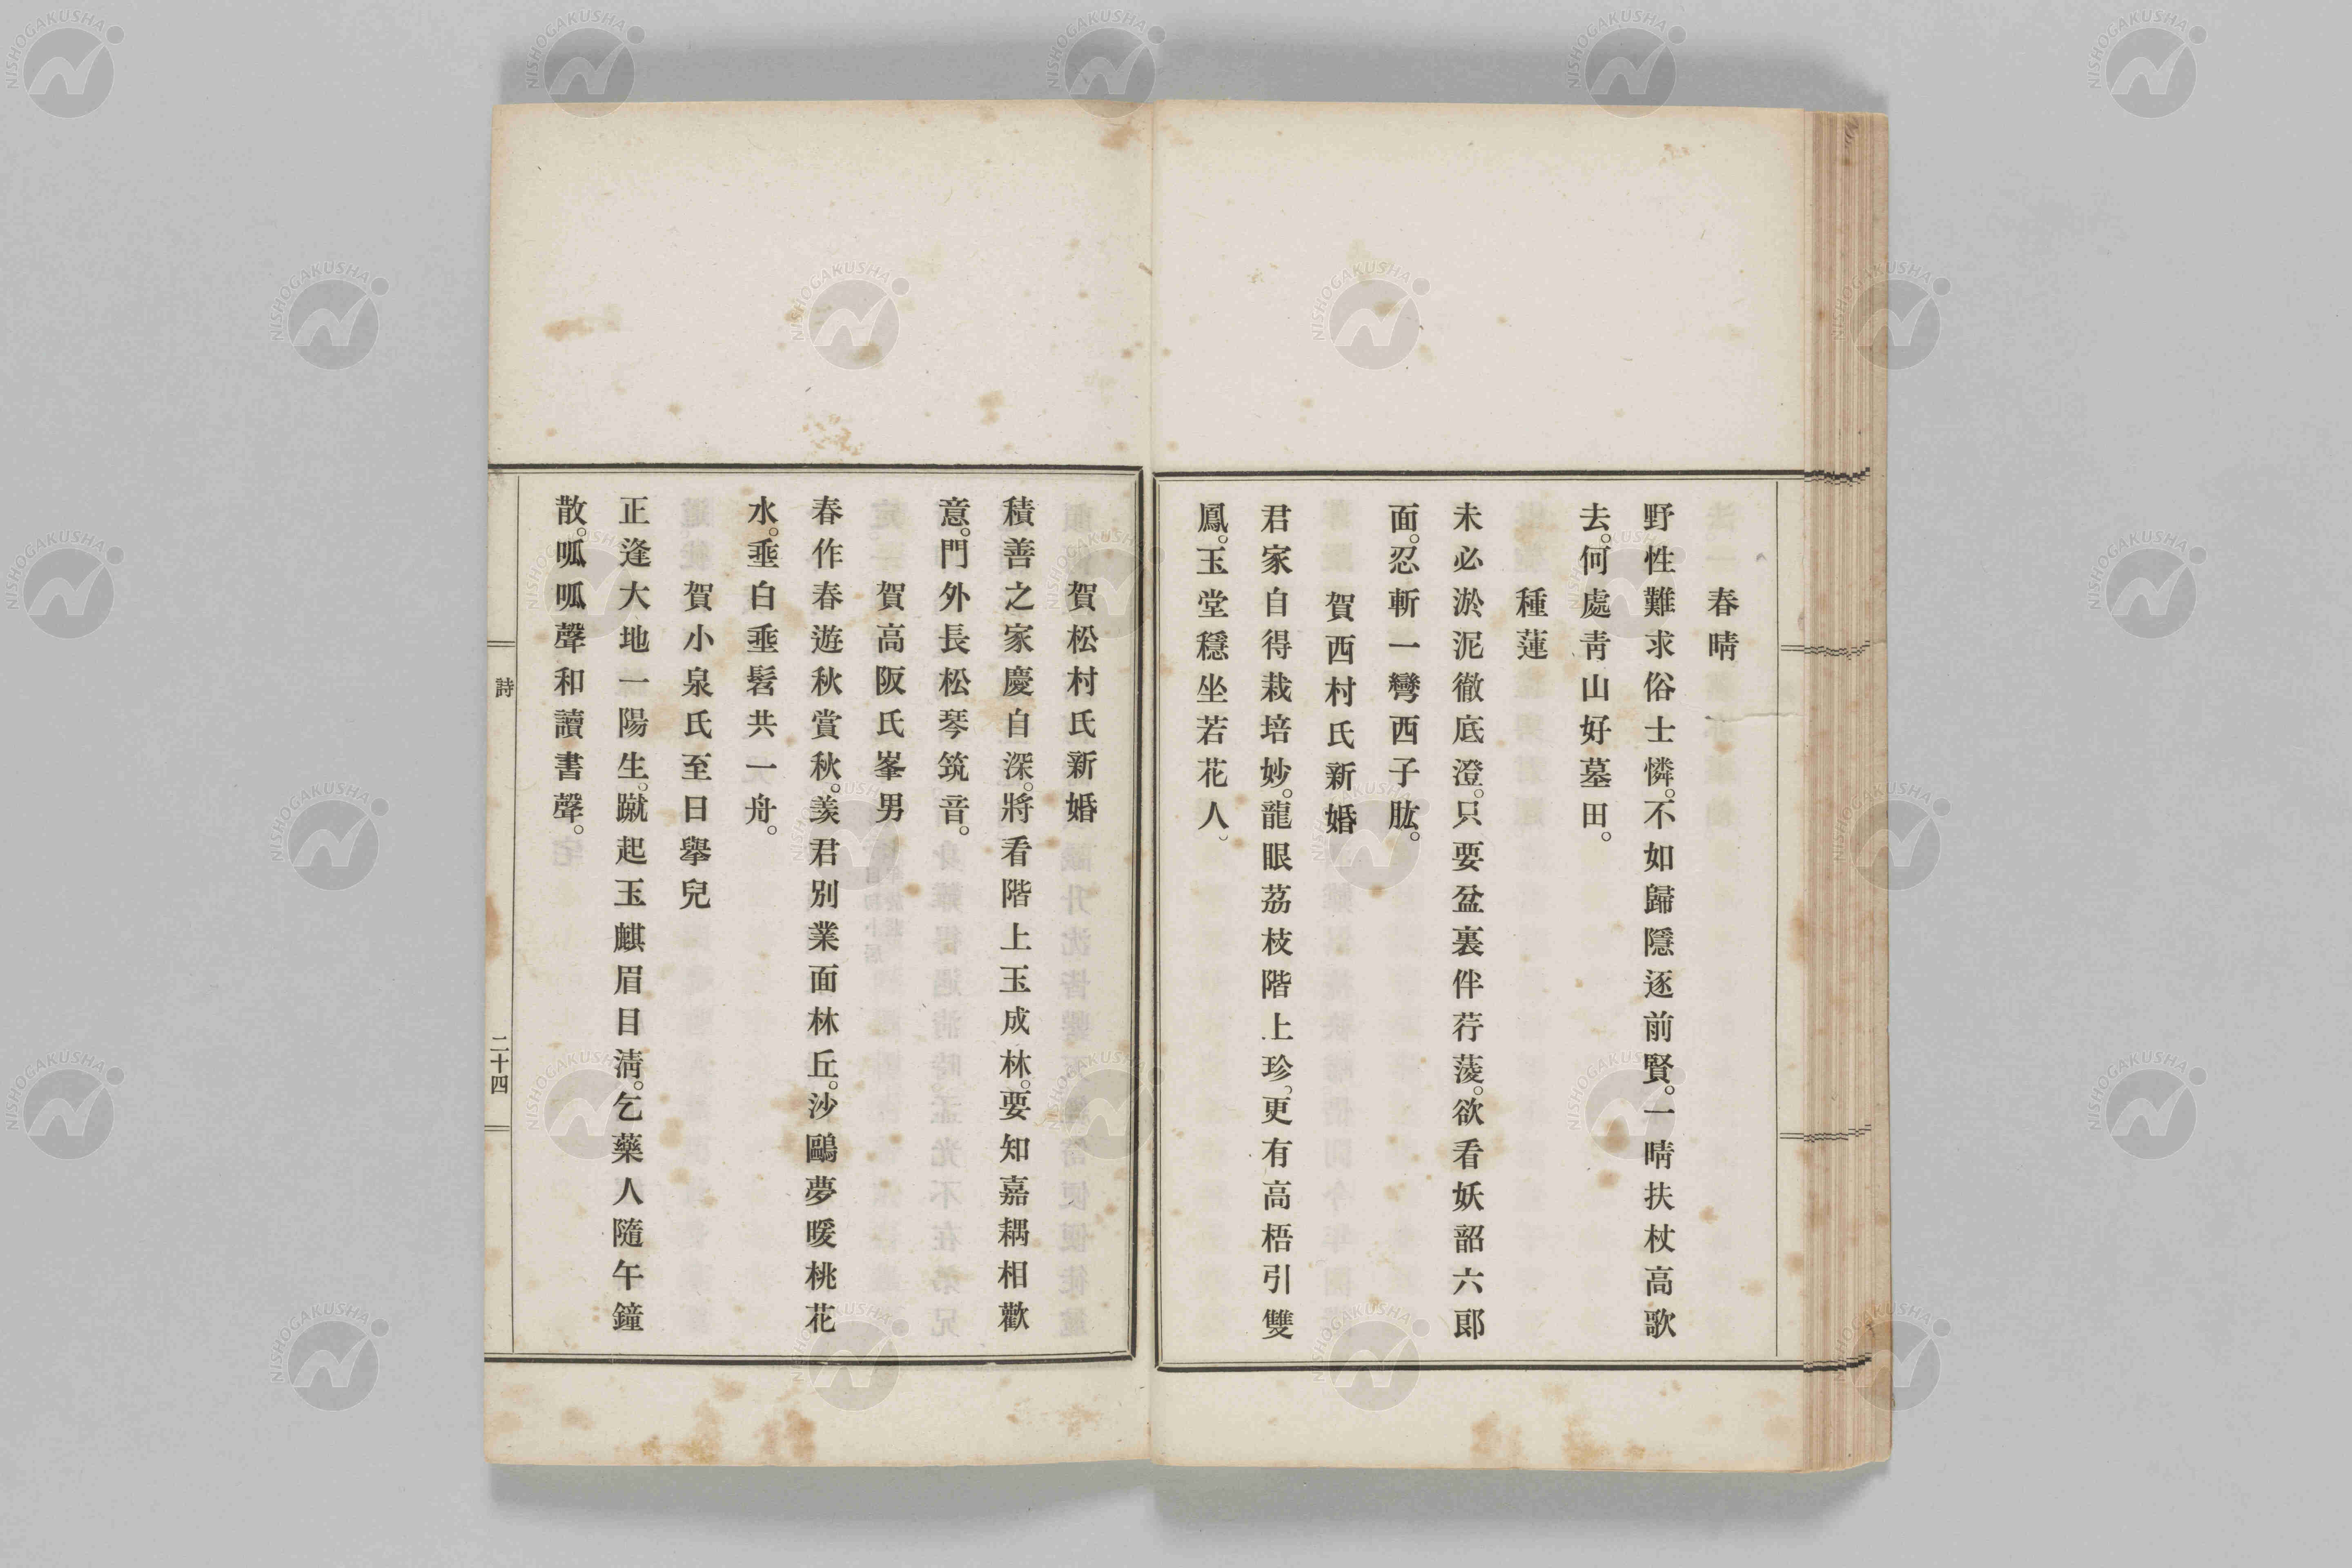 春晴
野性難求俗士憐。不如歸隱逐前賢。一晴扶杖高歌
去。何處靑山好墓田。
種蓮
未必淤泥徹底澄。只要盆裏伴荇蔆。欲看妖韶六郞
面。忍斬一彎西子肱。
賀西村氏新婚
君家自得栽培妙。龍眼荔枝階上珍。更有高梧引雙
鳳。玉堂穩坐若花人。
賀松村氏新婚
積善之家慶自深。將看階上玉成林。要知嘉耦相歡
意。門外長松琴筑音。
賀高阪氏峯男
春作春遊秋賞秋。羨君別業面林丘。沙鷗夢暖桃花
水。垂白垂髫共一舟。
賀小泉氏至日擧兒
正逢大地一陽生。蹴起玉麒眉目淸。乞藥人隨午鐘
散。呱呱聲和讀書聲。
詩
二十四
NISHOGAKUSHA